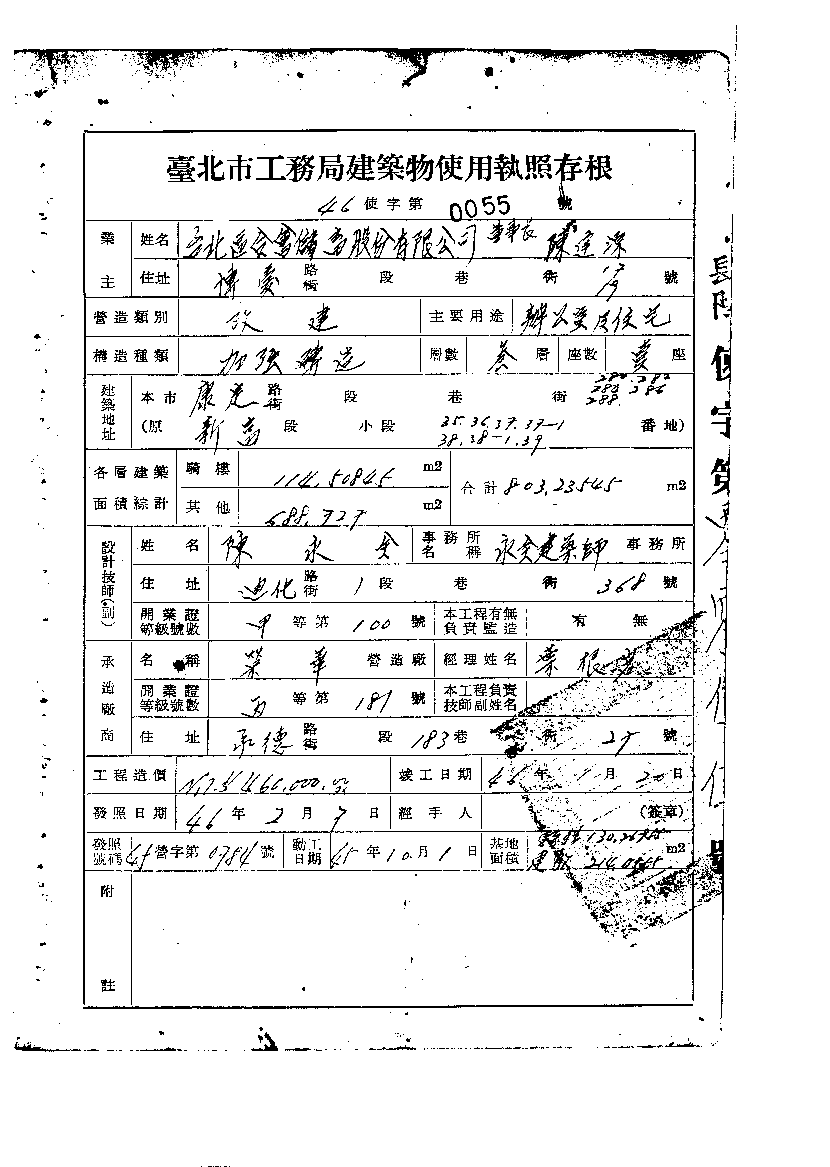 臺北市工務局建築物使用執照存根
46 使字第 0055 號
業主 姓名 台北區合會儲蓄股份有限公司 董事長 陳逢源
住址 博愛 路街 段 巷 街 號
營造類別 改建 主要用途 辦公室及住宅
構造種類 加強磚造 層數 叁 層 座數 壹 座
建築地址 本市 康定 路街 段 巷 街 280.282 284.286 288. 號
(原 新富 段 小段 35.36.37.37-1 38.38-1.39 番地)
各層建築面積綜計 騎樓 114.50845 m2 合計 803.23545 m2
其他 688.727 m2
設計技師(副) 姓名 陳永全 事務所名稱 永全建築師 事務所
住址 迪化 路街 1 段 巷 街 368 號
開業證等級號數 甲 等第 100 號 本工程有無負責監造 有 無
承造廠商 名稱 榮華 營造廠 經理姓名 葉根
開業證等級號數 丙 等第 181 號 本工程負責技師副姓名
住址 承德 路街 段 183 巷 街 27 號
工程造價 竣工日期 46 年 1 月 20 日
發照日期 46 年 2 月 7 日 經手人 (簽章)
發照號碼 45 營字第 0784 號 動工日期 45 年 10 月 1 日 基地面積 建 214.0545 m2
附註